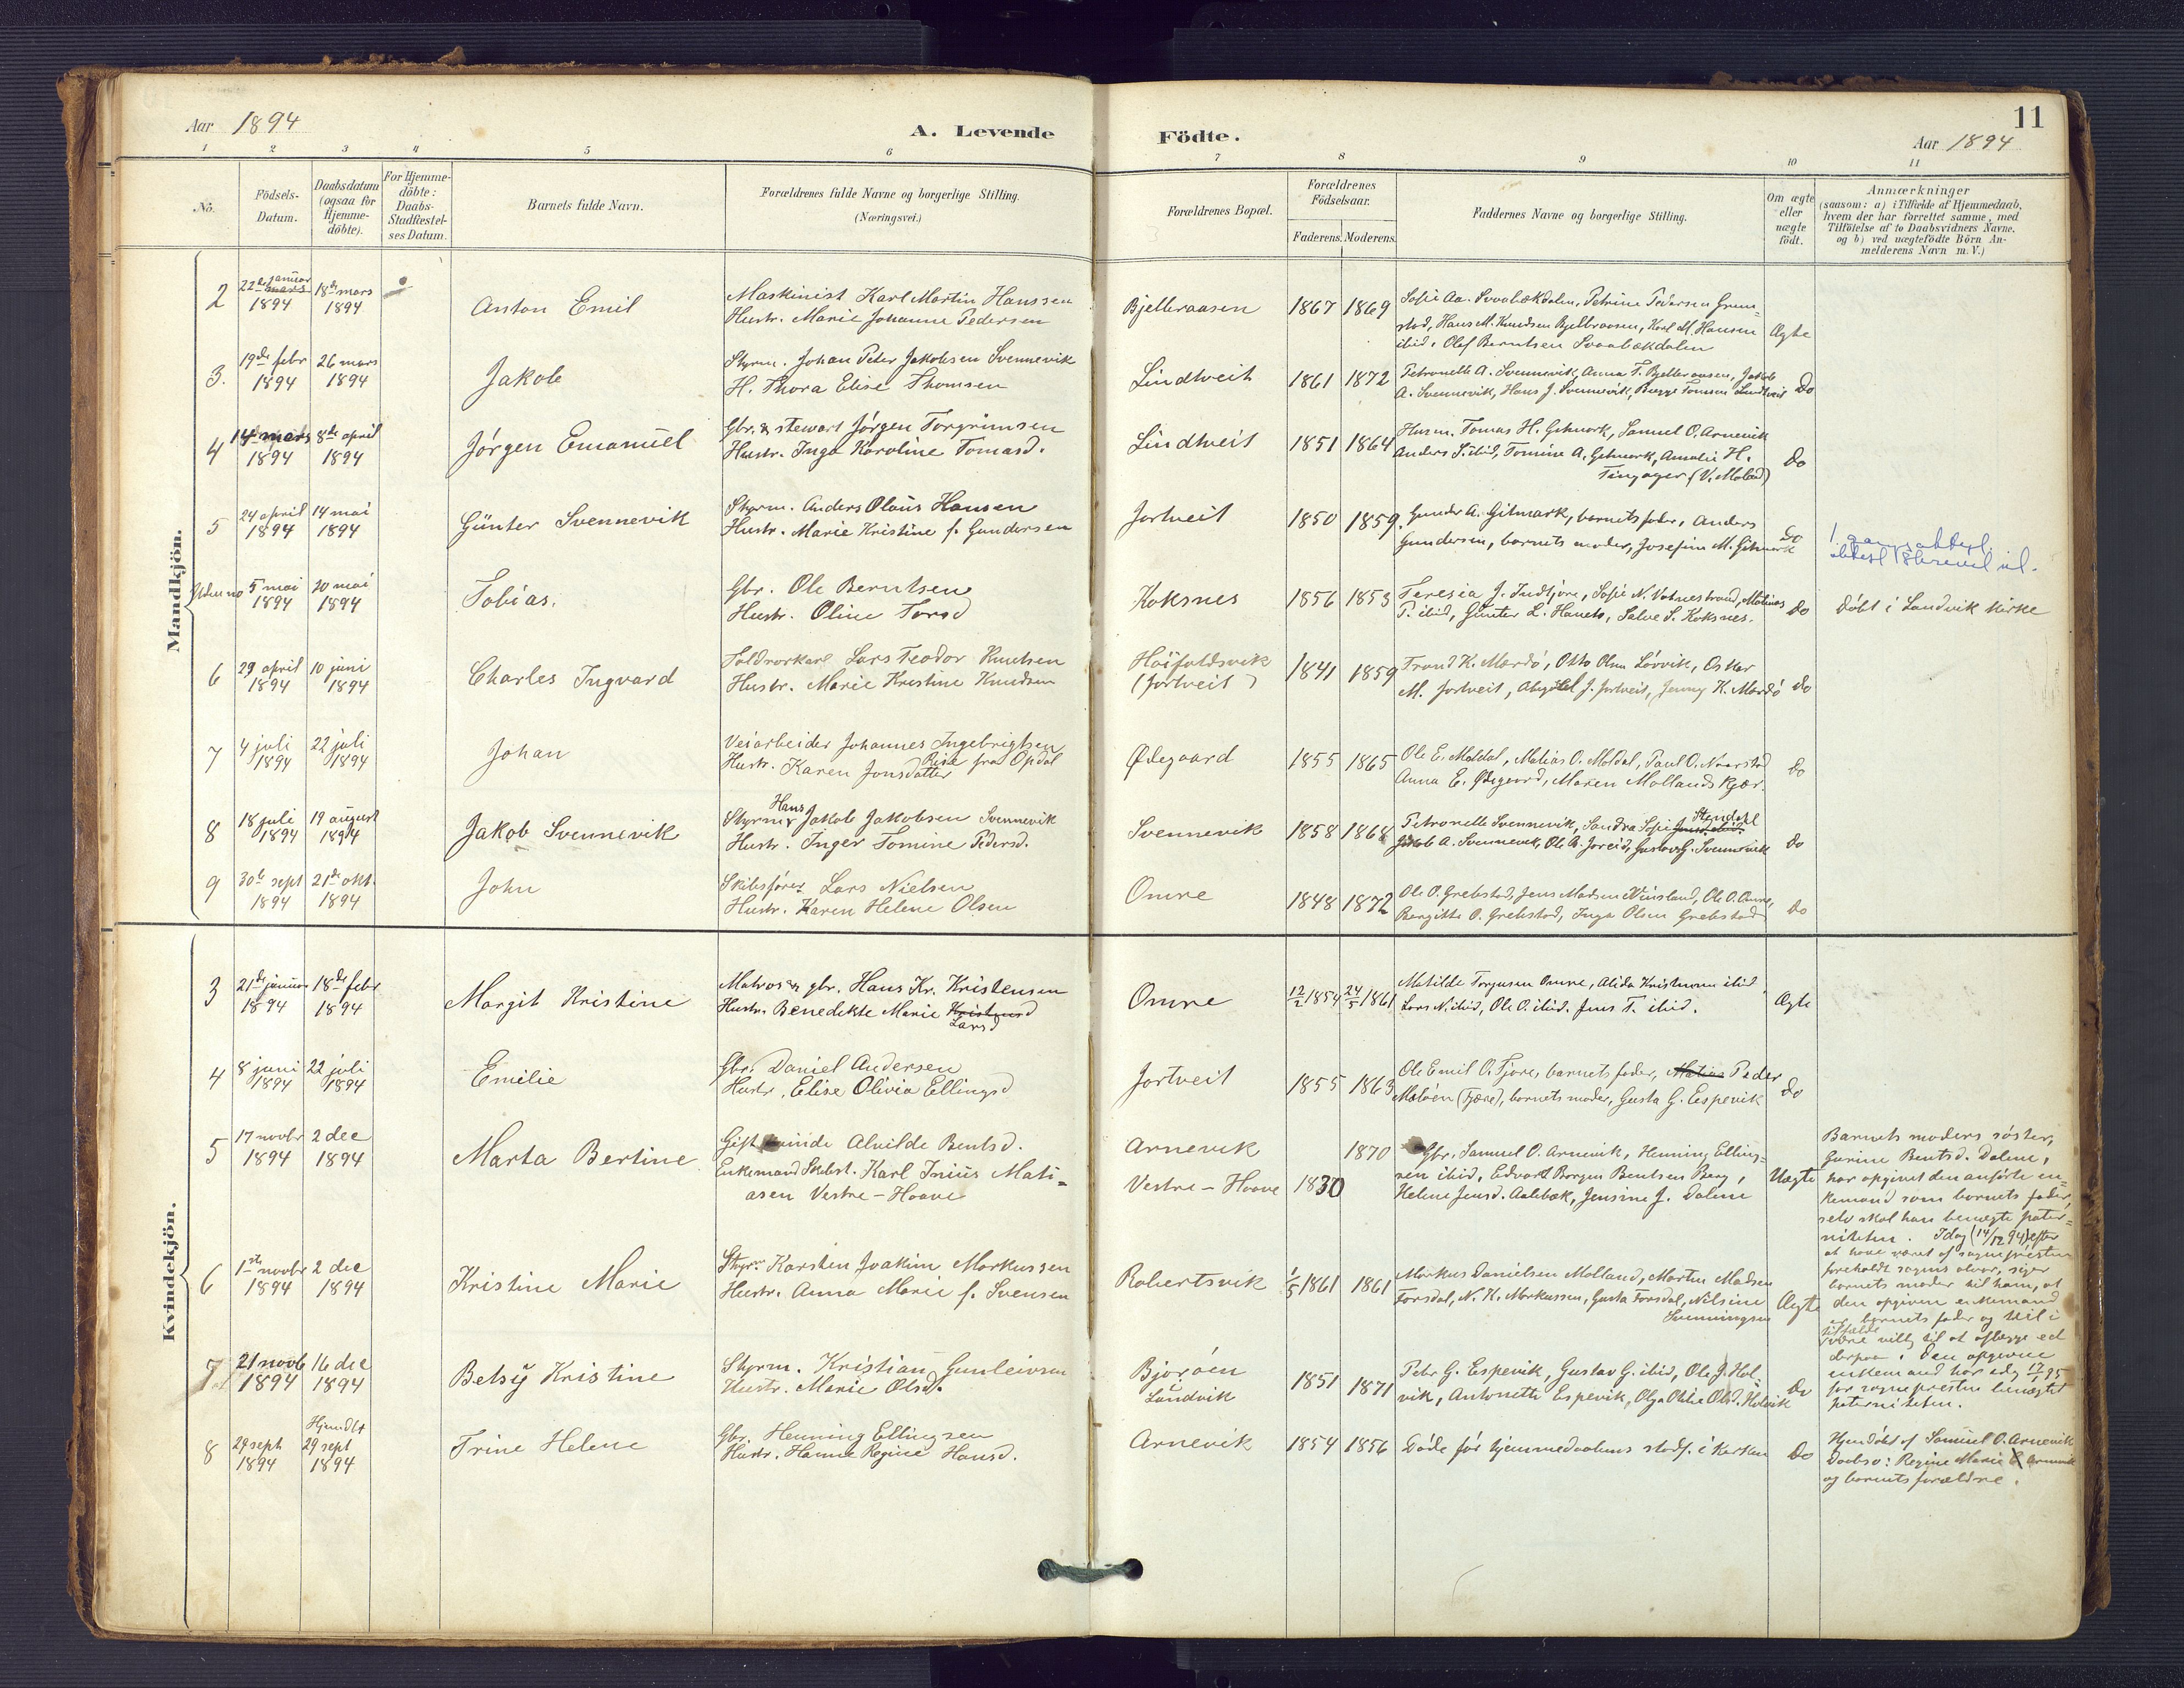 Aar 1894
A. Levende
Födte.
Aar 1894
11
1 2 3 4 5 6 7 8 9 10 11
No.
Födsels-
Datum.
Daabsdatum
(ogsaa for
Hjemme-
döbte).
For Hjemme-
döbte:
Daabs-
Stadfæstel-
ses Datum.
Barnets fulde Navn.
Forældrenes fulde Navne og borgerlige Stilling.
(Næringsvei.)
Forældrenes Bopæl.
Forældrenes
Födselsaar.
Faderens. Moderens.
Faddernes Navne og borgerlige Stilling.
Om ægte
eller
uægte
födt.
Anmærkninger
(saasom: a) i Tilfælde af Hjemmedaab,
hvem der har forrettet samme, med
Tilföielse af to Daabsvidners Navne.
og b) ved uægtefödte Börn An-
melderens Navn m. V.)
Mandkjön.
2
22de januar
mars
1894
18de mars
1894
Anton Emil
Maskinist Karl Martin Hanssen
Hustr. Marie Johanne Pedersen
Bjelleraasen
1867 1869
Sofie Aa. Svaabækdalen, Petrine Pedersen Grem-
stad, Hans M. Knudsen Bjelleraasen, Karl M. Hansen
ibid. Olaf Berntsen Svaabækdalen
Ægte
3.
19de febr
1894
26 mars
1894
Jakob
Styrm. Johan Peter Jakobsen Svennevik
H. Thora Elise Thomsen
Lindtveit
1861 1872
Petronelle A. Svennevik, Anna T. Bjelleraasen, Jakob
A. Svennevik, Hans J. Svennevik, Berge Tomsen Lindtveit
Do
4
14de mars
1894
8de april
1894
Jørgen Emanuel
Gbr. & stewart Jørgen Torgrimsen
Hustr. Inga Karoline Tomasd.
Lindtveit
1851 1864
Husm. Tomas H. Gitmark, Samuel O. Arnevik
Anders S. ibid, Tomine A. Gitmark, Amalie H.
Tingager (V. Moland)
Do
5
24 april
1894
14 mai
1894
Günter Svennevik
Styrm. Anders Olaus Hansen
Hustr. Marie Kristine f. Gundersen
Jortveit
1850 1859
Gunder A. Gitmark, barnets fader, Anders
Gundersen, barnets moder, Josefine M. Gitmark
Do
Uden no
5 mai
1894
20 mai
1894
Tobias.
Gbr. Ole Berntsen
Hustr. Oline Torsd
Koksnes
1856 1853
Teresia J. Indtjore, Sofie N. Vatnestrand, Matias
P. ibid, Günter L. Hanets, Salve S. Koksnes.
Do
Døbt i Landvik kirke
6
29 april
1894
10 juni
1894
Charles Ingvard
Toldrorkarl Lars Teodor Knutsen
Hustr. Marie Kristine Knudsen
Høifoldsvik
(Jortveit)
1841 1859
Trond K. Mærdø, Otto Olsen Lørvik, Oskar
M. Jortveit, Abigael J. Jortveit, Jenny K. Mærdø
Do
7
4 juli
1894
22 juli
1894
Johan
Veiarbeider Johannes Ingebrigtsen
Rise fra Opdal
Hustr. Karen Jonsdatter
Ødegaard
1855 1865
Ole E. Moldal, Matias O. Moldal, Paul O. Naarstad
Anna E. Ødegaard, Maren Mollandskjær.
Do
8
18 juli
1894
19 august
1894
Jakob Svennevik
Hans
Styrm. Jakob Jakobsen Svennevik
Hustr. Inger Tomine Pedersd.
Svennevik
1858 1868
Stendahl
Petronelle Svennevik, Sandra Sofie
Jakob A. Svennevik, Ole A. Joreid, Gustav G. Svennevik
Do
9
30te sept
1894
21de okt.
1894
John
Skibsfører Lars Nielsen
Hustr. Karen Helene Olsen
Omre
1848 1872
Ole O. Grebstad, Jens Madsen Vinsland, Ole O. Omre,
Bergitte O. Grebstad, Inga Olsen Grebstad
Do
Kvindekjön.
3
21de januar
1894
18de febr
1894
Margit Kristine
Matros & gbr. Hans Kr. Kristensen
Hustr. Benedikte Marie Kristensd
Larsd
Omre
12/2 1854 24/5 1861
Matilde Torjusen Omre, Alida Kristensen ibid
Lars N. ibid, Ole O. ibid. Jens T. ibid.
Ægte
4
8 juni
1894
22 juli
1894
Emilie
Gbr. Daniel Andersen
Hustr. Elise Olivia Ellingsd
Jortveit
1855 1863
Ole Emil O. Fjore, barnets fader, Matias Peder
Maløen (Fjære), barnets moder, Gusta G. Espevik
Do
5
17 novbr
1894
2 dec
1894
Marta Bertine
Gift kvinde Alvilde Bentsd.
Enkemand Skibst. Karl Inius Mati-
asen Vestre-Haave
Arnevik
Vestre-Haave
1830
1870
Gbr. Samuel O. Arnevik, Henning Elling-
sen ibid, Edvart Bergen Bentsen Berg,
Helene Jensd. Aalebæk, Jensine J. Dalene
Uægte
Barnets moders søster,
Gurine Bentsd. Dalene,
har opgivet den anførte en-
kemand som barnets fader,
selv skal han benægte pater-
niteten. Idag (14/12 94) efter
at have været af sognepresten
foreholdt sagens alvor, siger
barnets moder til ham, at
den opgivne enkemand
er barnets fader og vil i
tilfælde
være villig til at aflægge ed
derpaa. Den opgivne
enkemand har idag 17/1 95
for sognepresten benægtet
paterniteten.
6
1ste novbr
1894
2 dec
1894
Kristine Marie
Styrm. Karsten Joakim Markussen
Hustr. Anna Marie f. Svensen
Robertsvik
1/5 1861 1861
Markus Danielsen Molland, Martin Madsen
Forsdal, N. K. Markussen, Gusta Forsdal, Nilsine
Svenningsen
Ægte
7
21 novb
1894
16 dec
1894
Betsy Kristine
Styrm. Kristian Gunleivsen
Hustr. Marie Olsd.
Bjorøen
Landvik
1851 1871
Peter G. Espevik, Gustav G. ibid, Ole J. Hol-
vik, Antonette Espevik, Olga Otilie Olsd. Holvik
Do
8
29 sept
1894
Hjemdbt
29 sept
1894
Trine Helene
Gbr. Henning Ellingsen
Hustr. Hanne Regine Hansd.
Arnevik
1854 1856
Døde før hjemmedaabens stadf. i kirken
Do
Hjemdøbt af Samuel O. Arnevik
Daabsv: Regine Marie Arnevik
og barnets forældre.